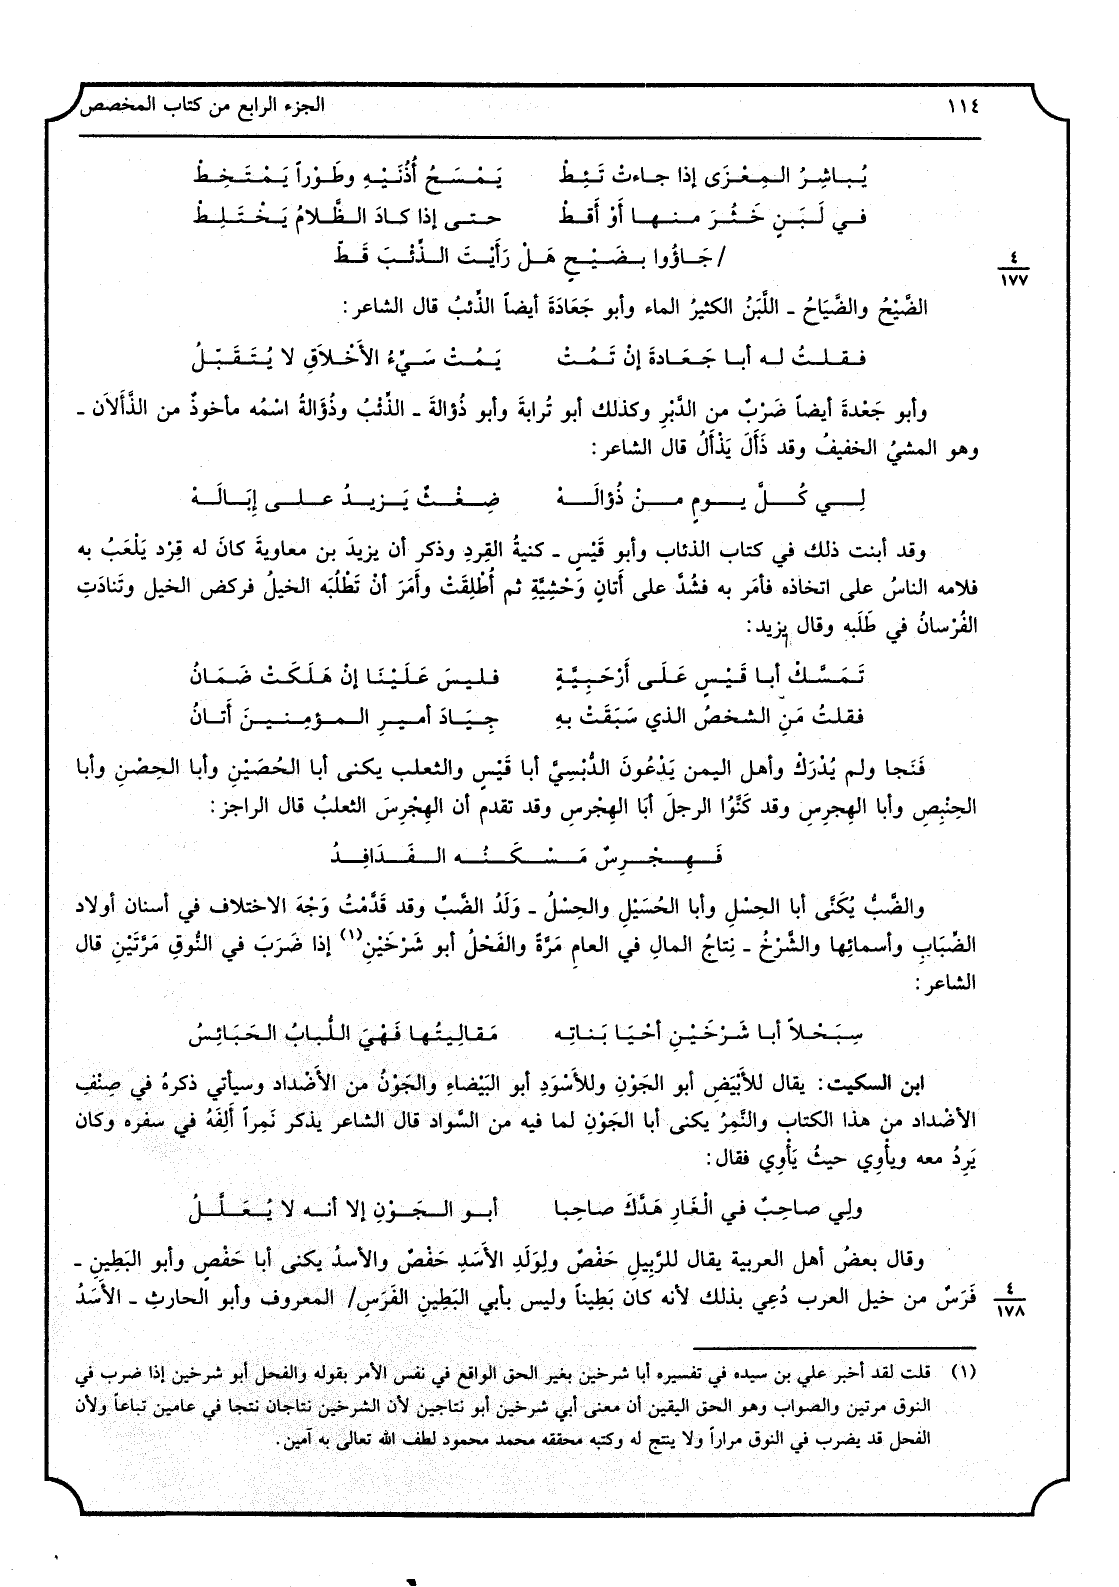 ١١٤ الجزء الرابع من كتاب المخصص
يُـبـاشِـرُ الـمِـعْـزَى إذا جـاءتْ تَـئِـطْ يَـمْـسَـحُ أُذُنَـيْـهِ وطَـوْراً يَـمْـتَـخِـطْ
فـي لَـبَـنٍ خَـثُـرَ مـنـهـا أوْ أَقـطْ حـتـى إذا كـادَ الـظَّـلامُ يَـخْـتَـلِـطْ
/جَـاؤُوا بـضَـيْـحٍ هَـلْ رَأَيْـتَ الـذِّئْـبَ قَـطّ
٤
١٧٧
الضَّيْحُ والضَّيَاحُ ـ اللَّبَنُ الكثيرُ الماء وأبو جَعَادَةَ أيضاً الذئبُ قال الشاعر:
فـقـلـتُ لـه أبـا جَـعَـادةَ إنْ تَـمُـتْ يَـمُـتْ سَـيِّءُ الأَخْـلَاقِ لا يُـتَـقَـبّـلُ
وأبو جَعْدةَ أيضاً ضَرْبٌ من الدَّبْرِ وكذلك أبو تُرابةَ وأبو ذُؤالةَ ـ الذِّئْبُ وذُؤَالةُ اسْمُه مأخوذٌ من الذَّأَلَان ـ
وهو المشيُ الخفيفُ وقد ذَأَلَ يَذْأَلُ قال الشاعر:
لِـي كُـلَّ يـومٍ مـنْ ذُؤَالَـهْ ضِـغْـثٌ يَـزيـدُ عـلـى إِبَـالَـهْ
وقد أبنت ذلك في كتاب الذئاب وأبو قَيْسٍ ـ كنيةُ القِردِ وذكر أن يزيدَ بن معاويةَ كانَ له قِرْد يَلْعَبُ به
فلامه الناسُ على اتخاذه فأمَر به فشُدَّ على أَتانٍ وَحْشِيَّةٍ ثم أُطْلِقَتْ وأمَرَ أنْ تَطْلُبَه الخيلُ فركض الخيل وتَنادَتِ
الفُرْسانُ في طَلَبه وقال يزيد:
تَـمَـسَّـكْ أبـا قَـيْـسٍ عَـلَـى أَرْحَـبِـيَّـةٍ فـلـيـسَ عَـلَـيْـنَـا إنْ هَـلَـكَـتْ ضَـمَـانُ
فقلتُ مَنِ الشخصُ الذي سَبَقَتْ بِهِ جِـيَـادَ أمـيـرِ الـمـؤمِـنـيـنَ أَتـانُ
فَنَجا ولم يُدْرَكْ وأهل اليمن يَدْعُونَ الدُّبْسِيَّ أبا قَيْسٍ والثعلب يكنى أبا الحُصَيْنِ وأبا الحِصْنِ وأبا
الحِنْبِصِ وأبا الهِجرِسِ وقد كَنَّوُا الرجلَ أبَا الهِجْرسِ وقد تقدم أن الهِجْرِسَ الثعلبُ قال الراجز:
فَـهِـجْـرِسٌ مَـسْـكَـنُـه الـفَـدَافِـدُ
والضَّبُّ يُكَنَّى أبا الحِسْلِ وأبا الحُسَيْلِ والحِسْلُ ـ وَلَدُ الضَّبّ وقد قَدَّمْتُ وَجْهَ الاختلاف في أسنان أولاد
الضِّبَابِ وأسمائِها والشَّرْخُ ـ نِتاجُ المال في العامِ مَرَّةً والفَحْلُ أبو شَرْخَيْنِ(١) إذا ضَرَبَ في النُّوقِ مَرَّتَيْنِ قال
الشاعر:
سِـبَـحْـلاً أبـا شَـرْخَـيْـنِ أحْـيَـا بَـنـاتِـه مَـقـالِـيـتُـهـا فَـهْـيَ الـلُّـبـابُ الـحَـبَـائِـسُ
ابن السكيت: يقال للأَبْيَضِ أبو الجَوْنِ وللأسْوَدِ أبو البَيْضاءِ والجَوْنُ من الأَضْداد وسيأتي ذكرهُ في صِنْفِ
الأضْداد من هذا الكتاب والنَّمِرُ يكنى أبا الجَوْنِ لما فيه من السَّواد قال الشاعر يذكر نَمِراً أَلِفَهُ في سفره وكان
يَرِدُ معه ويأوِي حيثُ يَأْوِي فقال:
ولِي صاحِبٌ في الْغَارِ هَدَّكَ صاحِبا أبـو الـجَـوْنِ إلا أنـه لا يُـعَـلَّـلُ
وقال بعضُ أهل العربية يقال للزَّبِيلِ حَفْصٌ ولِوَلَدِ الأَسَدِ حَفْصٌ والأسدُ يكنى أبا حَفْصٍ وأبو البَطِينِ ـ
فَرَسٌ من خيل العرب دُعِي بذلك لأنه كان بَطِيناً وليس بأبي البَطِينِ الفَرَسِ/ المعروف وأبو الحارثِ ـ الأسَدُ
٤
١٧٨
(١) قلت لقد أخبر علي بن سيده في تفسيره أبا شرخين بغير الحق الواقع في نفس الأمر بقوله والفحل أبو شرخين إذا ضرب في
النوق مرتين والصواب وهو الحق اليقين أن معنى أبي شرخين أبو نتاجين لأن الشرخين نتاجان نتجا في عامين تباعاً ولأن
الفحل قد يضرب في النوق مراراً ولا ينتج له وكتبه محققه محمد محمود لطف الله تعالى به آمين.